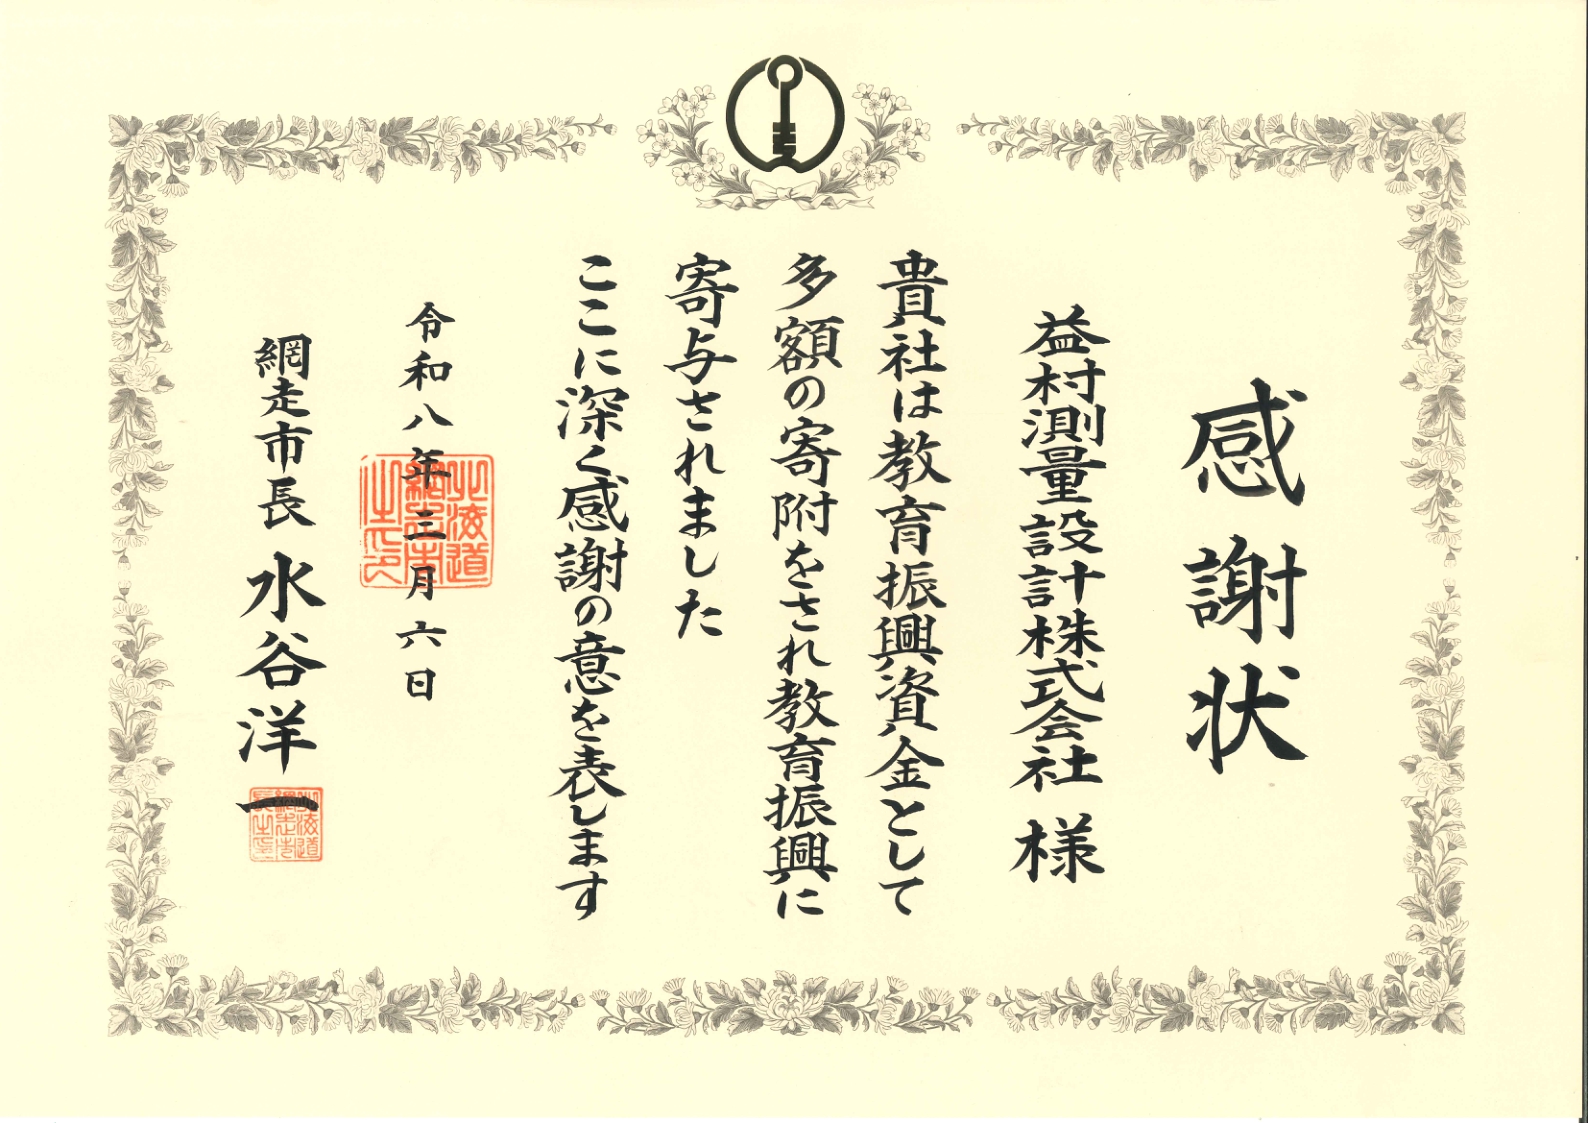 感謝状
益村測量設計株式会社 様
貴社は教育振興資金として
多額の寄附をされ教育振興に
寄与されました
ここに深く感謝の意を表します
令和八年三月六日
北海道
網走市
之印
網走市長 水谷洋一
北海道
網走市
長之印